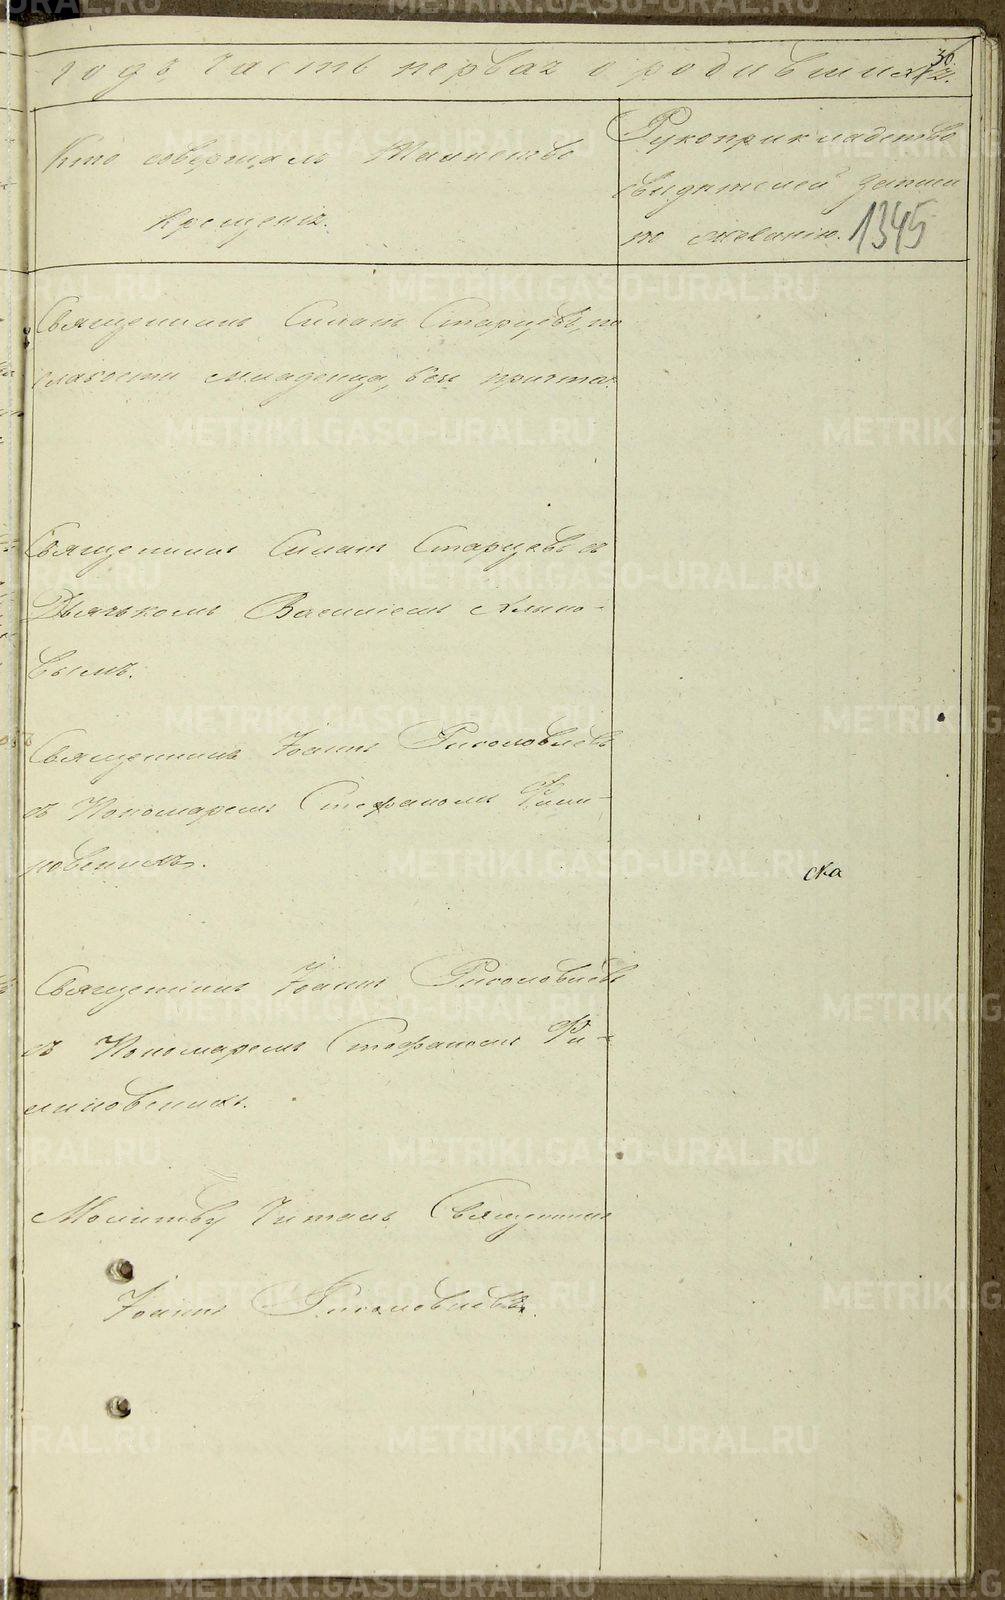 годъ Часть первая о родившихся.
36.
Кто совершалъ Таинство
Крещенія.
Рукоприкладство
свидѣтелей записи
по желанію.
1345
Священникъ Симонъ Старцевъ, по
слабости младенца, безъ причта.
Священникъ Симонъ Старцевъ съ
Дьячкомъ Василіемъ
вымъ.
Священникъ Іоаннъ
съ Пономаремъ Стефаномъ Фили-
повскимъ.
ска
Священникъ Іоаннъ
съ Пономаремъ Стефаномъ Фи-
липовскимъ.
Молитву читалъ Священникъ
Іоаннъ
METRIKI.GASO-URAL.RU